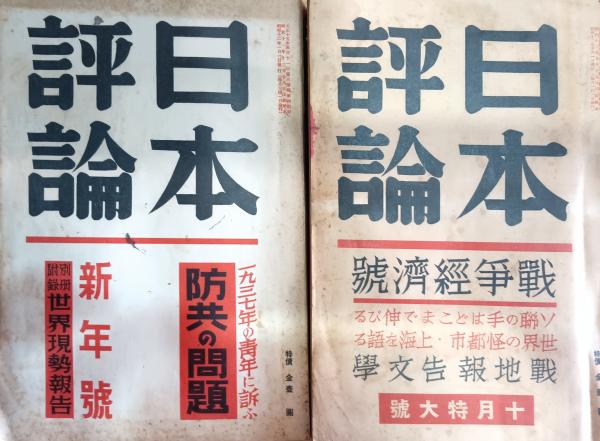 日本
評論
一九三七年の青年に訴ふ
防共の問題
新年號
別册附録
世界現勢報告
特價 金壹圓
日本
評論
戰爭經濟號
ソ聯の手はどこまで伸びる
世界の怪都市・上海を語る
戰地報告文學
十月特大號
特價 金壹圓